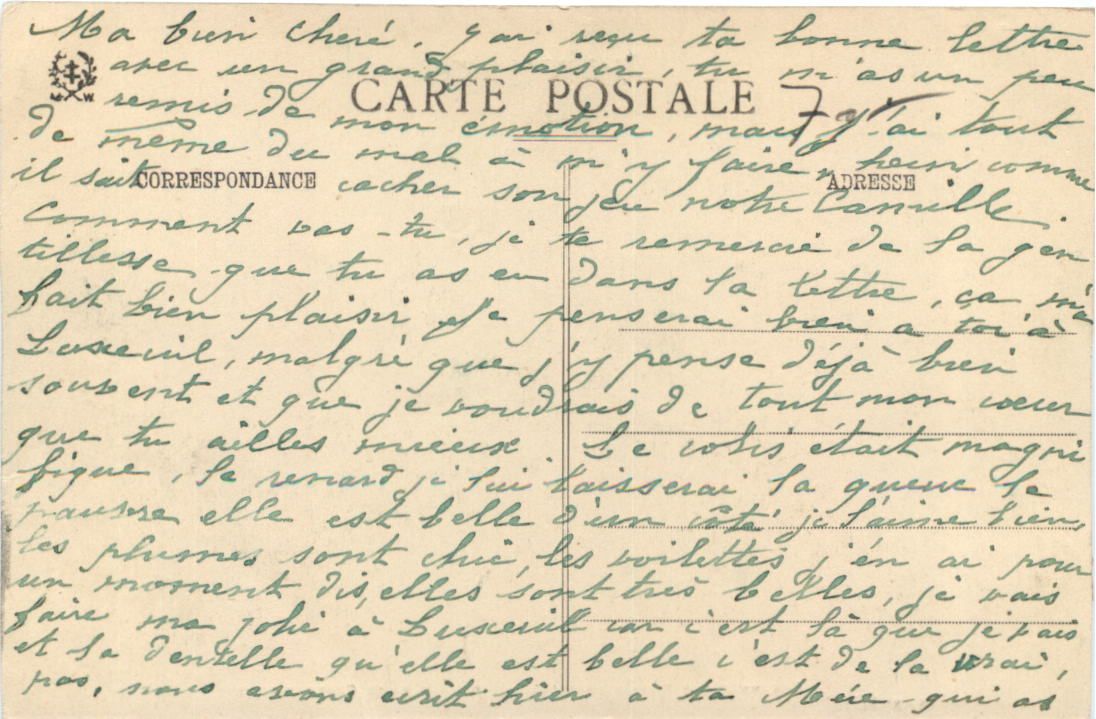 Ma bien cheré, j'ai reçu ta bonne lettre
avec un grand plaisir, tu m'as un peu
CARTE POSTALE
remis de mon émotion, mais j'ai tout
de même du mal à m'y faire, hein comme
CORRESPONDANCE
ADRESSE
il sait cacher son jeu notre Camille
Comment vas-tu, je te remercie de la gen
tillesse que tu as eu dans ta lettre, ça m'a
fait bien plaisir Je penserai bien a toi à
Luxeuil, malgré que j'y pense déjà bien
souvent et que je voudrais de tout mon coeur
que tu ailles mieux. Le colis était magni
fique, le renard je lui laisserai la queue le
pauvre elle est belle d'un côté je l'aime bien,
les plumes sont chic, les voilettes j'en ai pour
un moment dis, elles sont très belles, je vais
faire ma jolie à Luxeuil car c'est là que je vais
et la dentelle qu'elle est belle c'est de la vraie,
pas, nous avons écrit hier à ta Mère qui as